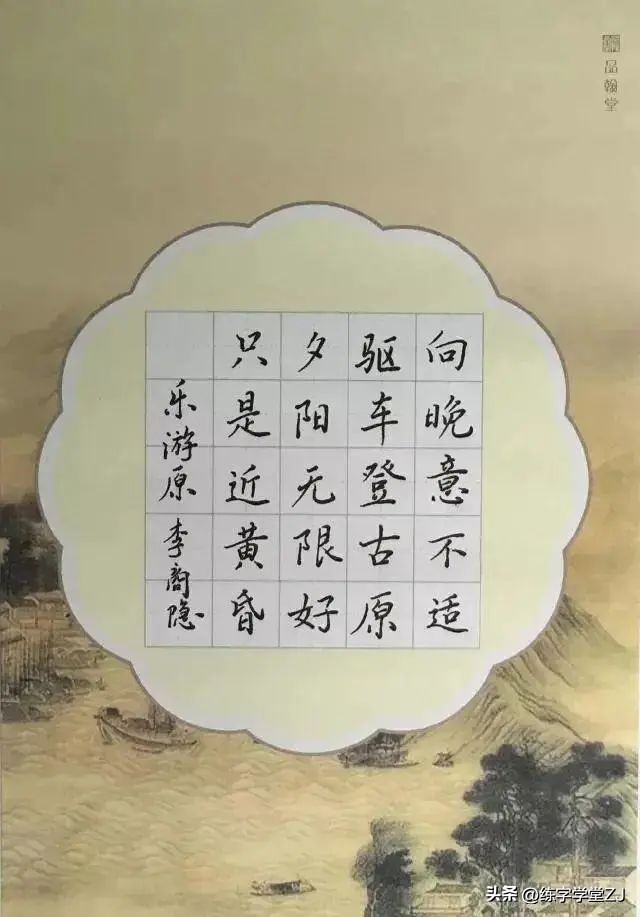 品翰堂
向晚意不适
驱车登古原
夕阳无限好
只是近黄昏
乐游原 李商隐
头条 @练字学堂ZJ